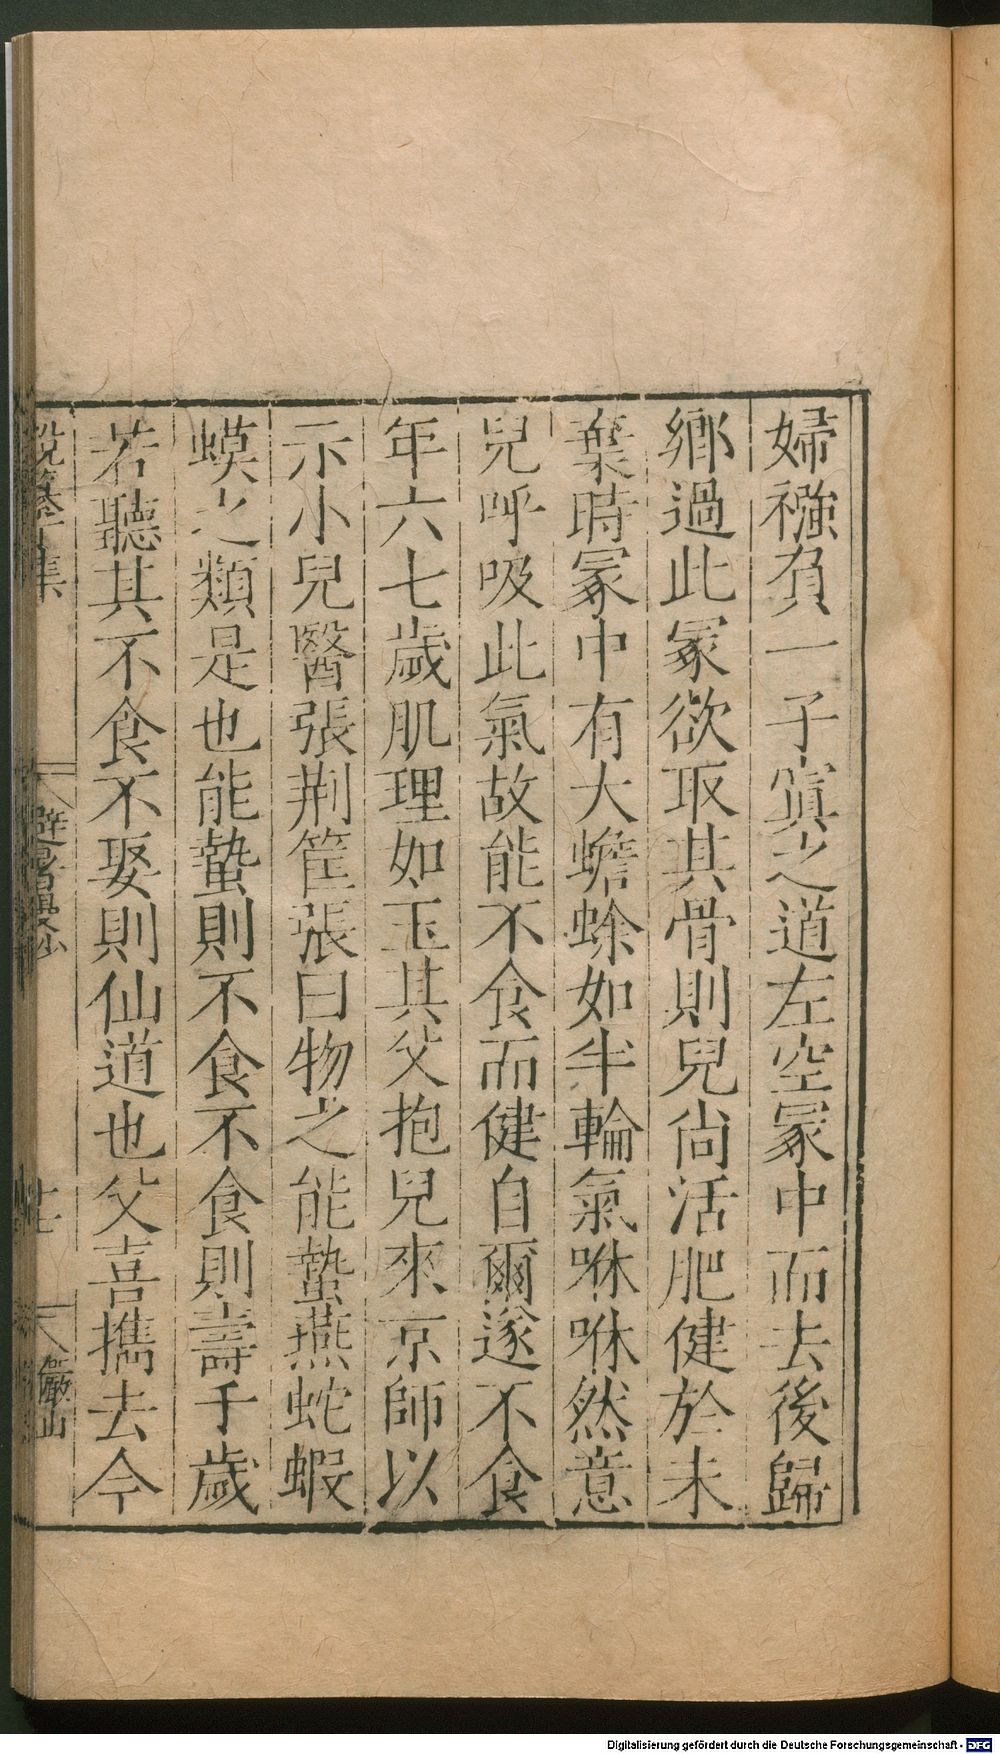 婦襁負一子寘之道左空冢中而去後歸
鄉過此冢欲取其骨則兒尚活肥健於未
棄時冢中有大蟾蜍如半輪氣咻咻然意
兒呼吸此氣故能不食而健自爾遂不食
年六七歲肌理如玉其父抱兒來京師以
示小兒醫張荆筐張曰物之能蟄燕蛇蝦
蟆之類是也能蟄則不食不食則壽千歲
若聽其不食不娶則仙道也父喜攜去今
說纂 集
避暑漫抄
七
儼山
Digitalisierung gefördert durch die Deutsche Forschungsgemeinschaft - DFG